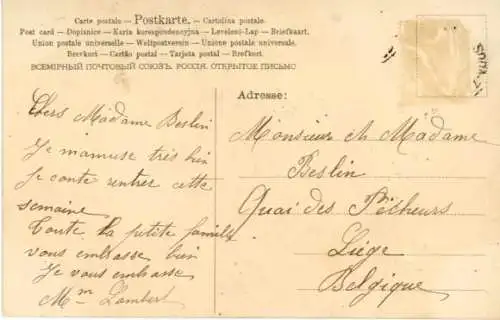 Carte postale — Postkarte. — Cartolina postale.
Post card — Dopisnice — Karta korespondencyjna — Levelező-Lap — Briefkaart.
Union postale universelle — Weltpostverein — Unione postale universale.
Brevkort — Cartão postal — Tarjeta postal — Brefkort.
ВСЕМІРНЫЙ ПОЧТОВЫЙ СОЮЗЪ. РОССІЯ. ОТКРЫТОЕ ПИСЬМО
Chers Madame Beslin
Je m'amuse très bien
Je conte rentrer cette
semaine
Toute la petite famille
vous embrasse bien
Je vous embrasse
Mm Lambert
Adresse:
Monsieur et Madame
Beslin
Quai des Pêcheurs
Liége
Belgique